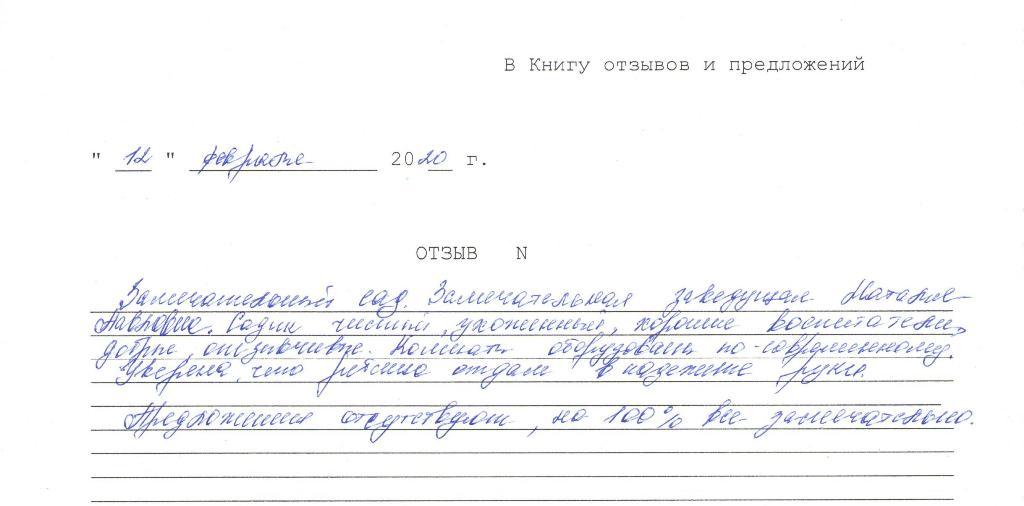 В Книгу отзывов и предложений
" 12 " февраля 2020 г.
ОТЗЫВ N
Замечательный сад. Замечательная заведущая Наталия
Павловна. Садик чистый, ухоженный, хорошие воспитатели,
добрые, отзывчивые. Комнаты оборудованы по-современному.
Уверена, что ребенка отдам в надежные руки.
Предложения отсутствуют, на 100% все замечательно.